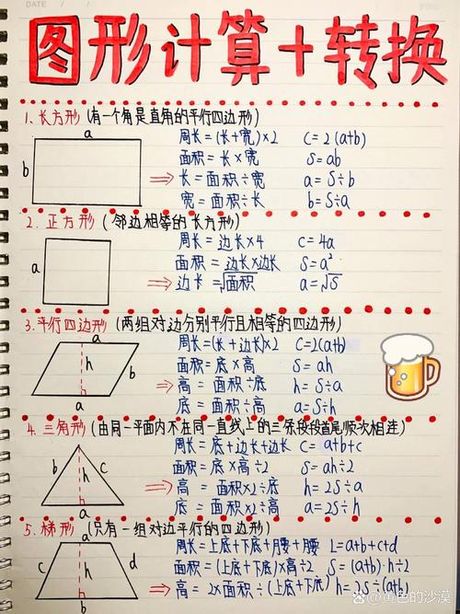 DATE
图形计算+转换
1、长方形(有一个角是直角的平行四边形)
a
b
周长=(长+宽)×2 C=2(a+b)
面积=长×宽 S=ab
⇒ 长=面积÷宽 a=S÷b
宽=面积÷长 b=S÷a
2、正方形(邻边相等的长方形)
a
周长=边长×4 C=4a
面积=边长×边长 S=a²
⇒ 边长=√面积 a=√S
3、平行四边形(两组对边分别平行且相等的四边形)
a
h
b
a
周长=(长+边长)×2 C=2(a+b)
面积=底×高 S=ah
⇒ 高=面积÷底 h=S÷a
底=面积÷高 a=S÷h
4、三角形(由同一平面内不在同一直线上的三条线段首尾顺次相连)
b
h
c
a
周长=底+边长+边长 C=a+b+c
面积=底×高÷2 S=ah÷2
⇒ 高=面积×2÷底 h=2S÷a
底=面积×2÷高 a=2S÷h
5、梯形(只有一组对边平行的四边形)
a
c
h
d
b
周长=上底+下底+腰+腰 L=a+b+c+d
面积=(上底+下底)×高÷2 S=(a+b)·h÷2
⇒ 高=2×面积÷(上底+下底) h=2S÷(a+b)
色的沙漠